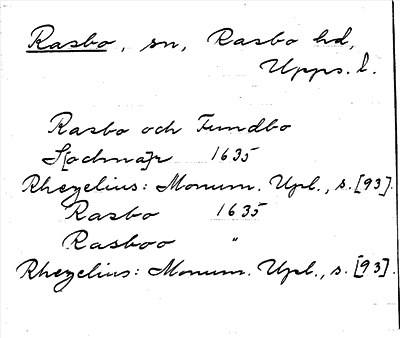 Rasbo, sn, Rasbo hd,
Upps. l.
Rasbo och Funndbo
S[ochna]r 1635
Rhezelius: Monum. Upl., s. [93].
Rasbo 1635
Rasboo "
Rhezelius: Monum. Upl., s. [93].